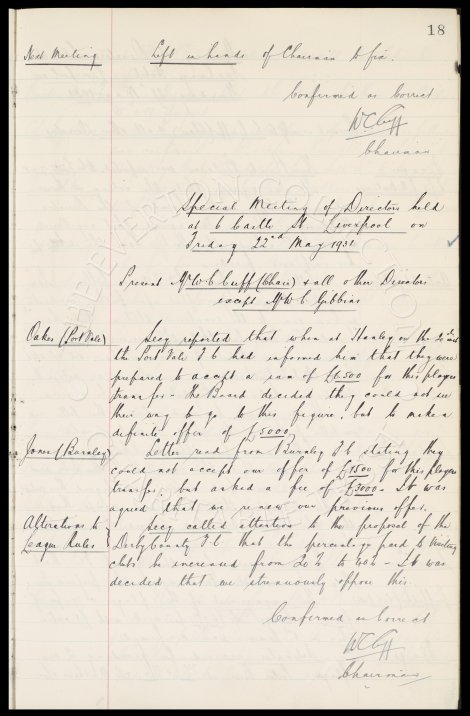 18
Next Meeting Left in hands of Chairman to fix.
Confirmed as Correct
WCCuff
Chairman
Special Meeting of Directors held
at 6 Castle St. Liverpool on
Friday 22nd May 1931
Present Mr W.C. Cuff (Chair) & all other Directors
except Mr W C Gibbins
Oakes (Port Vale) Secy reported that when at Hanley on the 20th inst
the Port Vale F C had informed him that they were
prepared to accept a sum of £6,500 for this players
transfer - the Board decided they could not see
their way to go to this figure, but to make a
definite offer of £5000.
Jones (Burnley) Letter read from Burnley F C stating they
could not accept our offer of £1500 for this players
transfer, but asked a fee of £3000 - It was
agreed that we renew our previous offer.
Alterations to Secy called attention to the proposal of the
League Rules Derby County F C that the percentage paid to Visiting
clubs be increased from 20% to 40% - It was
decided that we strenuously oppose this.
Confirmed as Correct
WCCuff
Chairman
THE EVERTON COLLECTION